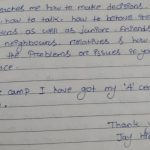 teaches me how to make decisions
how to talk. how to behave
as well as juniors. friends
neighbours. relatives & how
the problems or issues
camp I have got my 'A'
Thank
Jay